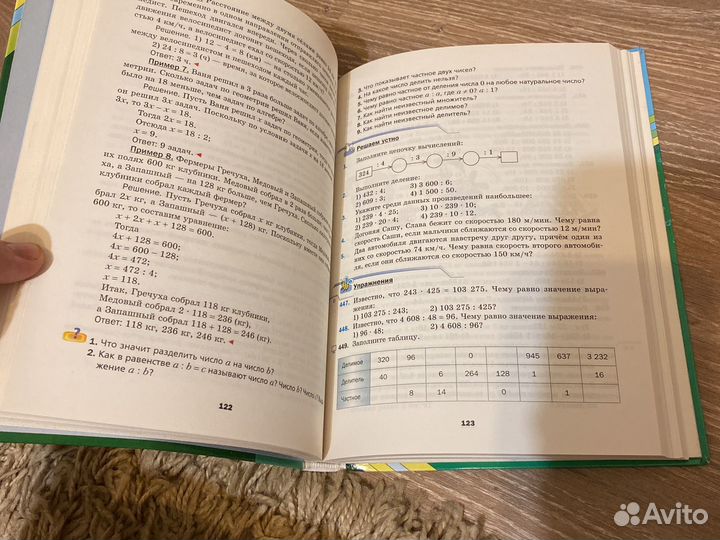 Расстояние между двумя сёлами
временно в одном направлении отправились
дист. Пешеход двигался впереди. Через сколько
движения велосипедист догонит пешехода, если
стью 4 км/ч, а велосипедист ехал со скоростью
Решение. 1) 12 – 4 = 8 (км)
между велосипедистом и пешеходом каждый
2) 24 : 8 = 3 (ч) — время, за которое велосипедист
Ответ: 3 ч.
Пример 7. Ваня решил в 3 раза больше задач по
метрии. Сколько задач по геометрии решил Ваня,
было на 18 меньше, чем задач по алгебре?
Решение. Пусть Ваня решил x задач по геометрии,
он решил 3x задач. Поскольку по условию задач
3x, то 3x – x = 18.
Тогда 2x = 18,
Отсюда x = 18 : 2;
x = 9.
Ответ: 9 задач.
Пример 8. Фермеры Гречуха, Медовый и Запашный
их полях 600 кг клубники. Медовый собрал в 2 раза
ха, а Запашный — на 128 кг больше, чем Гречуха. Сколько
клубники собрал каждый фермер?
Решение. Пусть Гречуха собрал x кг клубники, тогда
брал 2x кг, а Запашный — (x + 128) кг. Поскольку вместе
600 кг, то составим уравнение:
x + 2x + x + 128 = 600.
Тогда
4x + 128 = 600;
4x = 600 – 128;
4x = 472;
x = 472 : 4;
x = 118.
Итак, Гречуха собрал 118 кг клубники,
Медовый собрал 2 · 118 = 236 (кг),
а Запашный собрал 118 + 128 = 246 (кг).
Ответ: 118 кг, 236 кг, 246 кг.
?
1. Что значит разделить число a на число b?
2. Как в равенстве a : b = c называют число a? Число b? Число c?
жение a : b?
122
3. Что показывает частное двух чисел?
4. На какое число делить нельзя?
5. Чему равно частное от деления числа 0 на любое натуральное число?
6. Чему равно частное a : a, где a ≠ 0? a : 1?
7. Как найти неизвестный множитель?
8. Как найти неизвестное делимое?
9. Как найти неизвестный делитель?
Решаем устно
1. Заполните цепочку вычислений:
324 : 4 : 3 · 9 : 1
2. Выполните деление:
1) 432 : 4; 3) 3 600 : 6;
2) 609 : 3; 4) 1 500 : 50.
3. Укажите среди данных произведений наибольшее:
1) 239 · 4 · 25; 3) 10 · 239 · 10;
2) 239 · 20 · 4; 4) 239 · 10 · 12.
4. Догоняя Сашу, Слава бежит со скоростью 180 м/мин. Чему равна
скорость Саши, если мальчики сближаются со скоростью 12 м/мин?
5. Два автомобиля двигаются навстречу друг другу, причём один из
них со скоростью 74 км/ч. Чему равна скорость второго автомоби-
ля, если они сближаются со скоростью 150 км/ч?
Упражнения
447. Известно, что 243 · 425 = 103 275. Чему равно значение выра-
жения:
1) 103 275 : 243; 2) 103 275 : 425?
448. Известно, что 4 608 : 48 = 96. Чему равно значение выражения:
1) 96 · 48; 2) 4 608 : 96?
449. Заполните таблицу.
Делимое 320 96 0 945 637 3 232
Делитель 40 6 264 128 1 16
Частное 8 14 0 1
123
Avito